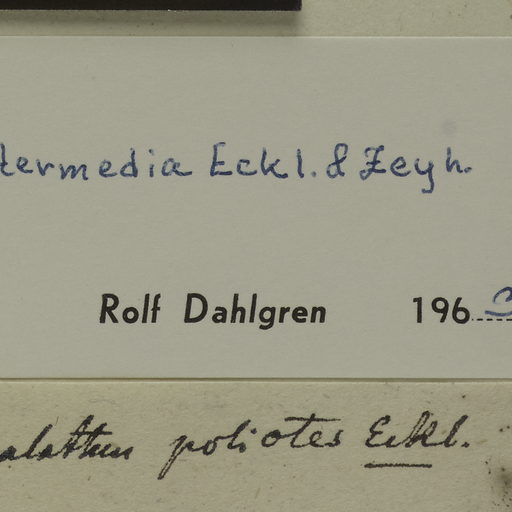 termedia Eckl. & Zeyh.
Rolf Dahlgren 196
alathus poliotes Eckl.